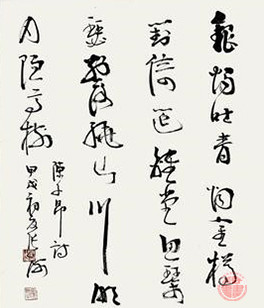 銀燭吐青煙金樽
對綺筵離堂思琴
瑟別路繞山川明
月隱高樹
陳子昂詩
甲戌初夏